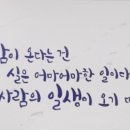 람이 온다는건
실은 어마어마한 일이다
사람의 일생이 오기 때